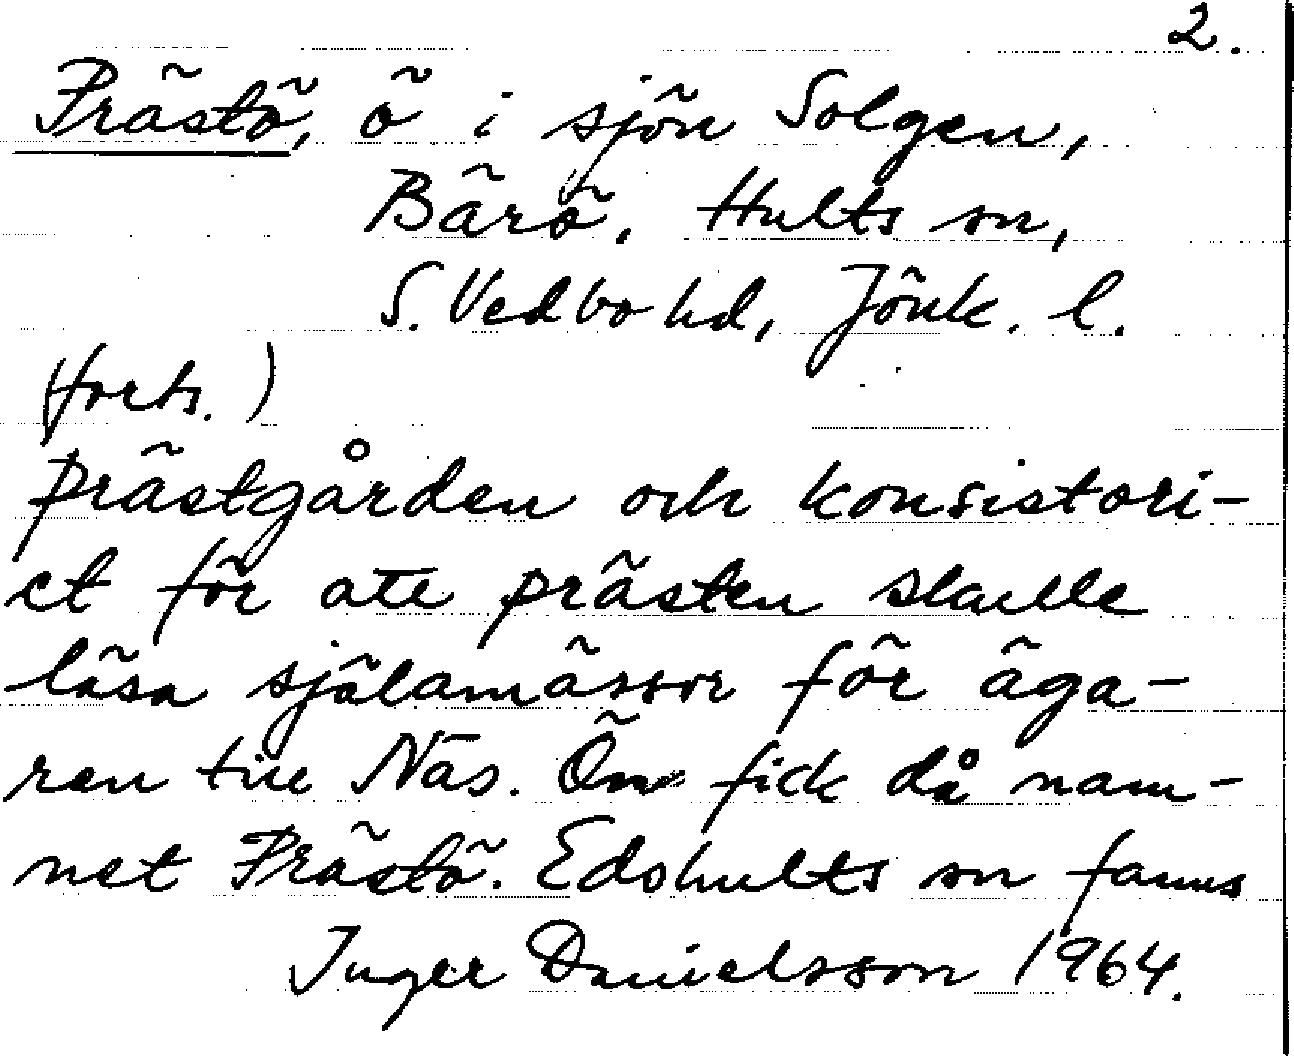 2.
Prästö, ö i sjön Solgen,
Bärö. Hults sn,
S. Vedbo hd, Jönk. l.
(forts.)
prästgården och konsistori-
et för att prästen skulle
läsa själamässor för äga-
ren till Näs. Ön fick då nam-
net Prästö. Edshults sn fanns
Inger Danielsson 1964.